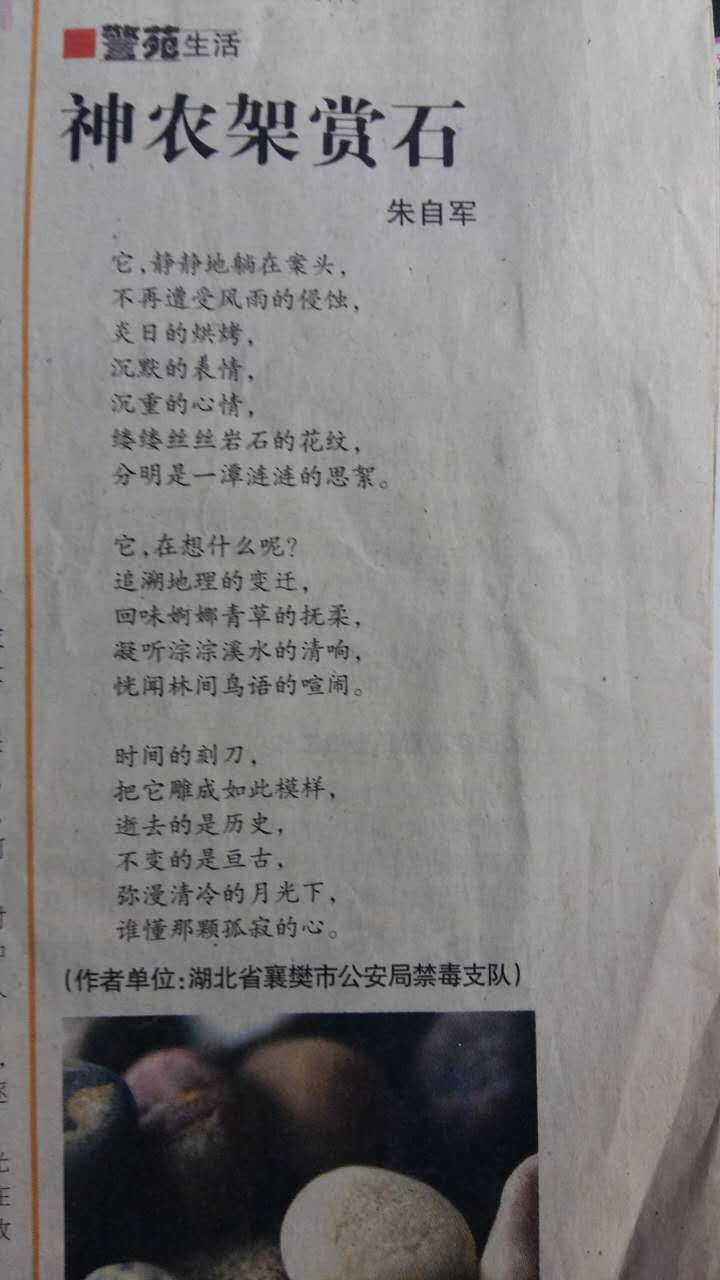 警苑生活
神农架赏石
朱自军
它,静静地躺在案头,
不再遭受风雨的侵蚀,
炎日的烘烤,
沉默的表情,
沉重的心情,
缕缕丝丝岩石的花纹,
分明是一潭涟涟的思絮。
它,在想什么呢?
追溯地理的变迁,
回味婀娜青草的抚柔,
凝听淙淙溪水的清响,
恍闻林间鸟语的喧闹。
时间的刻刀,
把它雕成如此模样,
逝去的是历史,
不变的是亘古,
弥漫清冷的月光下,
谁懂那颗孤寂的心。
(作者单位:湖北省襄樊市公安局禁毒支队)